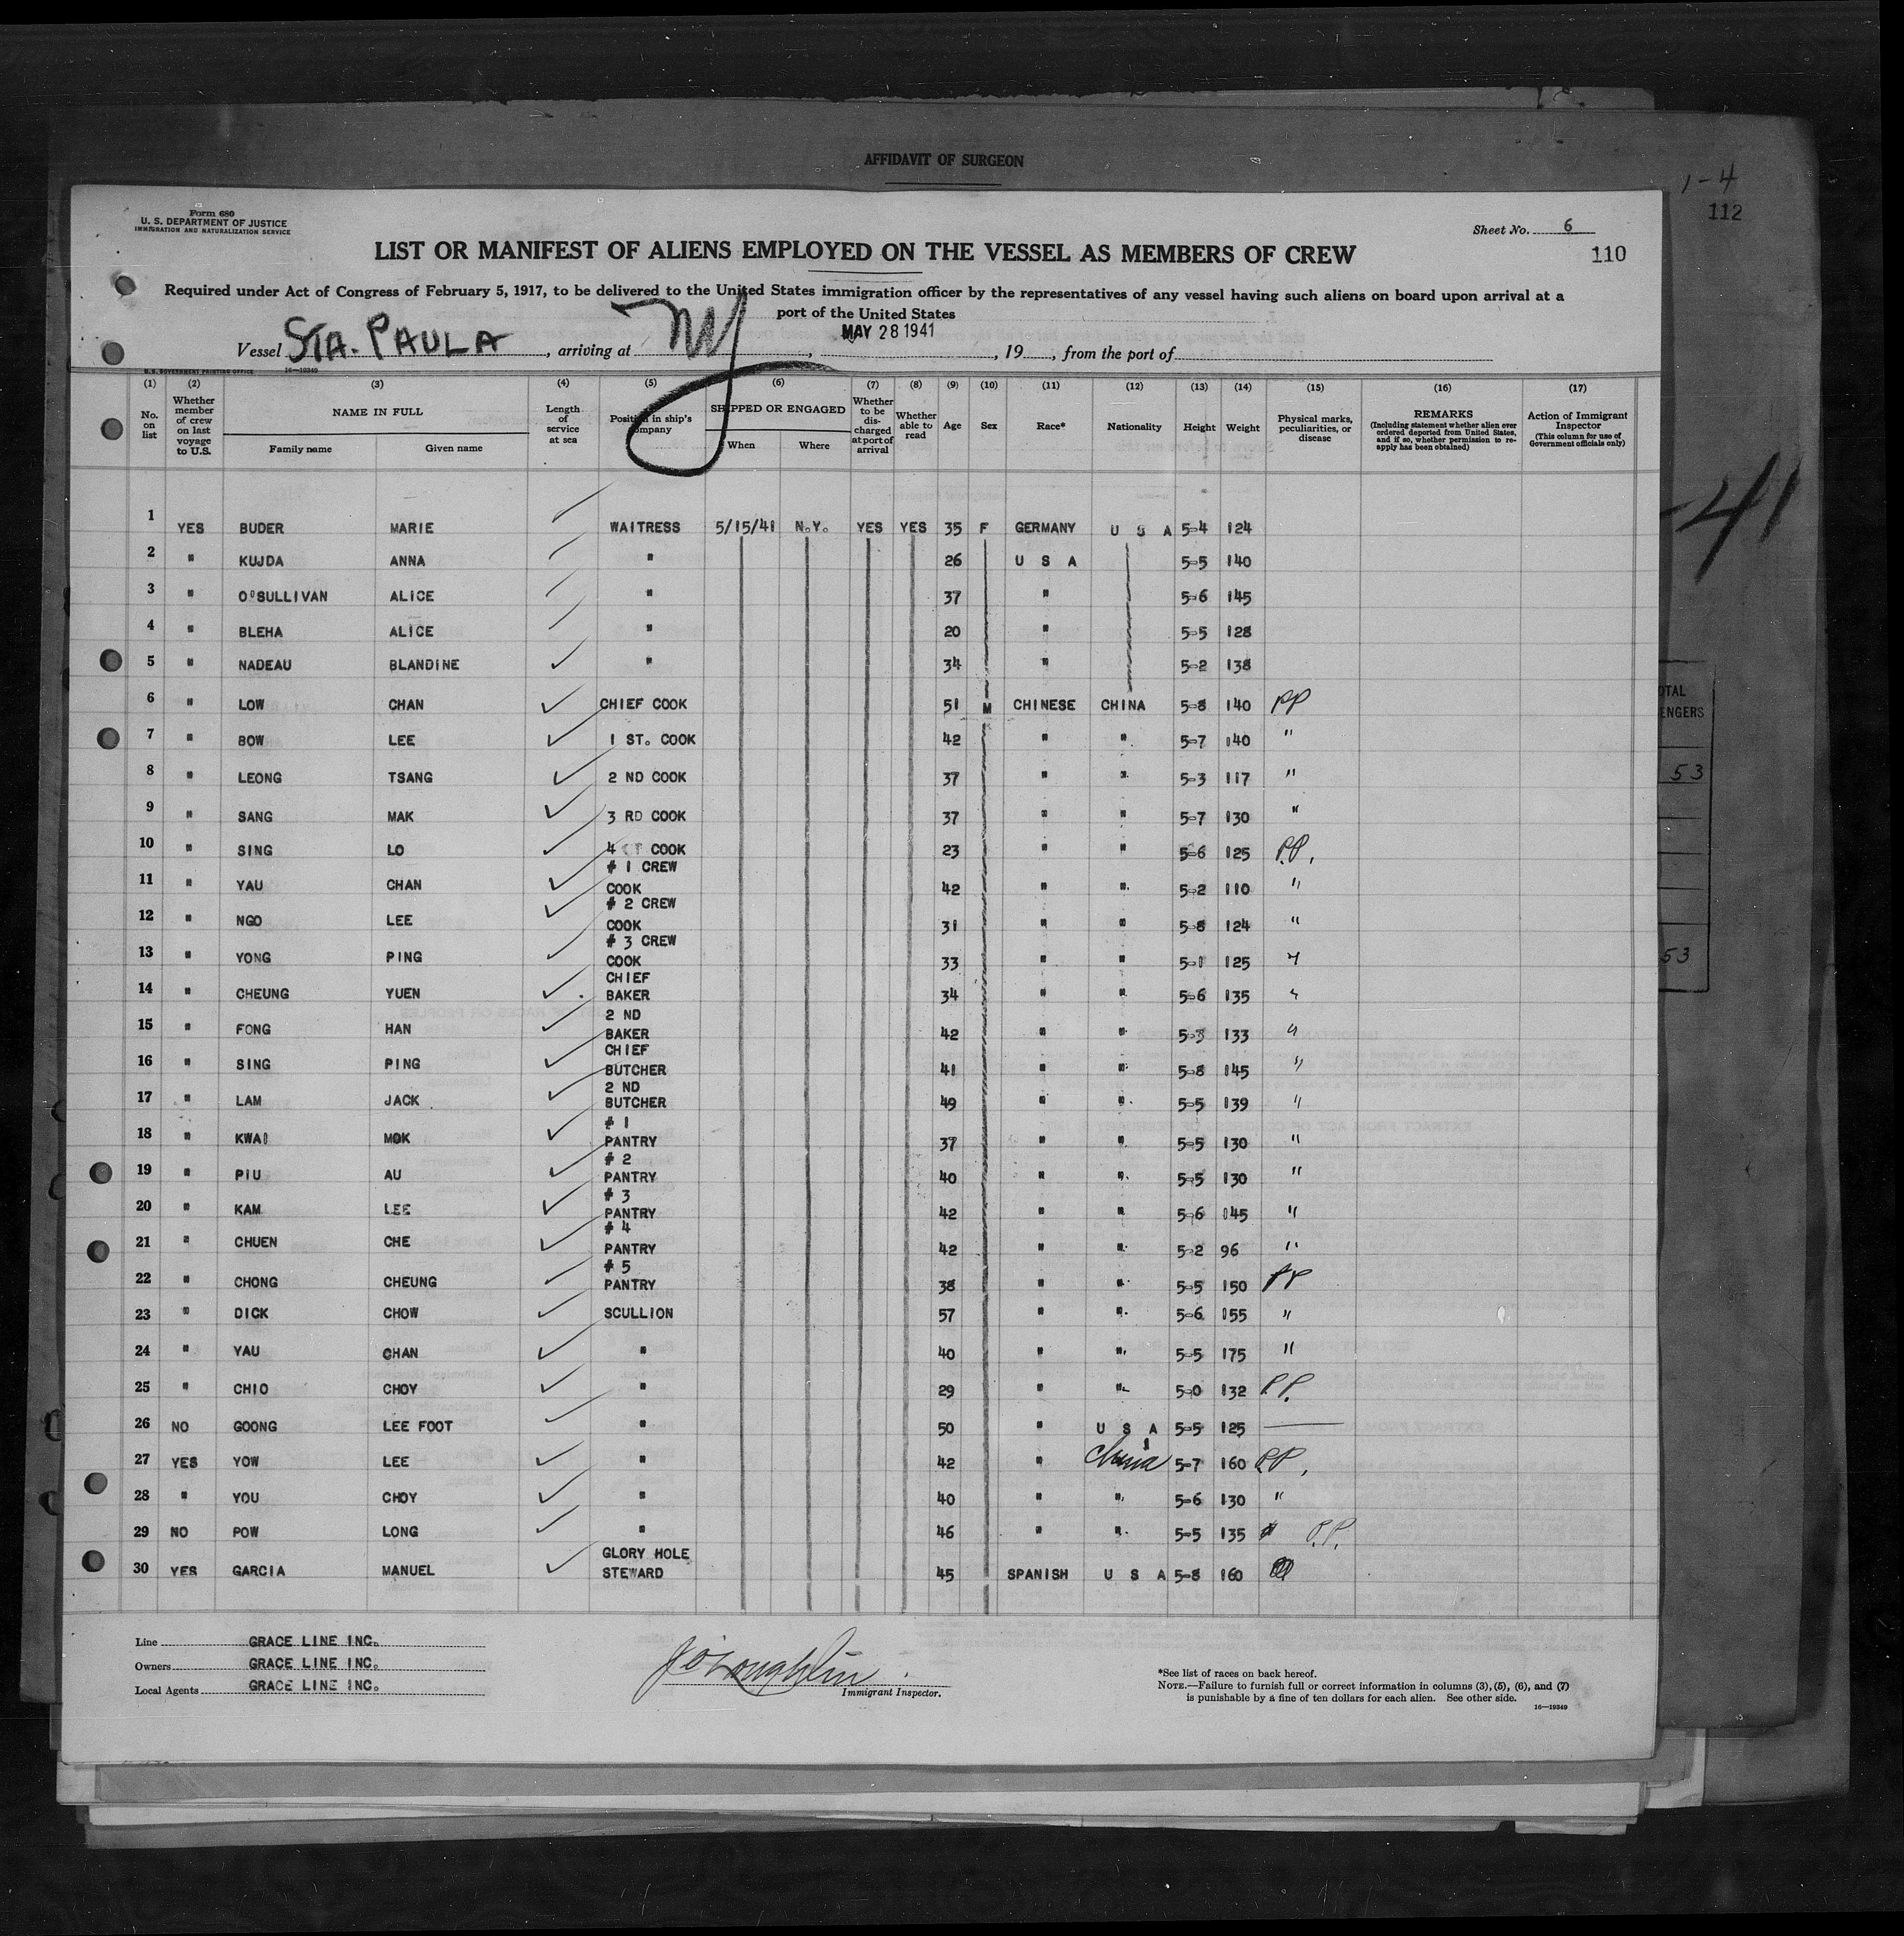 AFFIDAVIT OF SURGEON
1-4
112
Form 680
U. S. DEPARTMENT OF JUSTICE
IMMIGRATION AND NATURALIZATION SERVICE
Sheet No. 6
110
LIST OR MANIFEST OF ALIENS EMPLOYED ON THE VESSEL AS MEMBERS OF CREW
Required under Act of Congress of February 5, 1917, to be delivered to the United States immigration officer by the representatives of any vessel having such aliens on board upon arrival at a
port of the United States
Vessel STA. PAULA, arriving at NY, MAY 28 1941, 19, from the port of
U. S. GOVERNMENT PRINTING OFFICE 16—19349
(1) (2) (3) (4) (5) (6) (7) (8) (9) (10) (11) (12) (13) (14) (15) (16) (17)
No. on list
Whether member of crew on last voyage to U.S.
NAME IN FULL
Family name
Given name
Length of service at sea
Position in ship's company
SHIPPED OR ENGAGED
When
Where
Whether to be discharged at port of arrival
Whether able to read
Age
Sex
Race*
Nationality
Height
Weight
Physical marks, peculiarities, or disease
REMARKS
(Including statement whether alien ever ordered deported from United States, and if so, whether permission to reapply has been obtained)
Action of Immigrant Inspector
(This column for use of Government officials only)
1 YES BUDER MARIE WAITRESS 5/15/41 N.Y. YES YES 35 F GERMANY U S A 5-4 124
2 " KUJDA ANNA " 26 U S A 5-5 140
3 " O'SULLIVAN ALICE " 37 " 5-6 145
4 " BLEHA ALICE " 20 " 5-5 128
5 " NADEAU BLANDINE " 34 " 5-2 138
6 " LOW CHAN CHIEF COOK 51 M CHINESE CHINA 5-8 140 PP
7 " BOW LEE 1 ST. COOK 42 " " 5-7 140 "
8 " LEONG TSANG 2 ND COOK 37 " " 5-3 117 "
9 " SANG MAK 3 RD COOK 37 " " 5-7 130 "
10 " SING LO 4 COOK 23 " " 5-6 125 P.P.
11 " YAU CHAN # 1 CREW COOK 42 " " 5-2 110 "
12 " NGO LEE # 2 CREW COOK 31 " " 5-8 124 "
13 " YONG PING # 3 CREW COOK 33 " " 5-1 125 "
14 " CHEUNG YUEN CHIEF BAKER 34 " " 5-6 135 "
15 " FONG HAN 2 ND BAKER 42 " " 5-3 133 "
16 " SING PING CHIEF BUTCHER 41 " " 5-8 145 "
17 " LAM JACK 2 ND BUTCHER 49 " " 5-5 139 "
18 " KWAI MOK # 1 PANTRY 37 " " 5-5 130 "
19 " PIU AU # 2 PANTRY 40 " " 5-5 130 "
20 " KAM LEE # 3 PANTRY 42 " " 5-6 145 "
21 " CHUEN CHE # 4 PANTRY 42 " " 5-2 96 "
22 " CHONG CHEUNG # 5 PANTRY 38 " " 5-5 150 PP
23 " DICK CHOW SCULLION 57 " " 5-6 155 "
24 " YAU CHAN " 40 " " 5-5 175 "
25 " CHIO CHOY " 29 " " 5-0 132 P.P.
26 NO GOONG LEE FOOT " 50 " U S A 5-5 125
27 YES YOW LEE " 42 " China 5-7 160 P.P.
28 " YOU CHOY " 40 " " 5-6 130 "
29 NO POW LONG " 46 " " 5-5 135 P.P.
30 YES GARCIA MANUEL GLORY HOLE STEWARD 45 SPANISH U S A 5-8 160
Line GRACE LINE INC.
Owners GRACE LINE INC.
Local Agents GRACE LINE INC.
J O'Loughlin
Immigrant Inspector.
*See list of races on back hereof.
NOTE.—Failure to furnish full or correct information in columns (3), (5), (6), and (7)
is punishable by a fine of ten dollars for each alien. See other side.
16—19349
-41
53
53